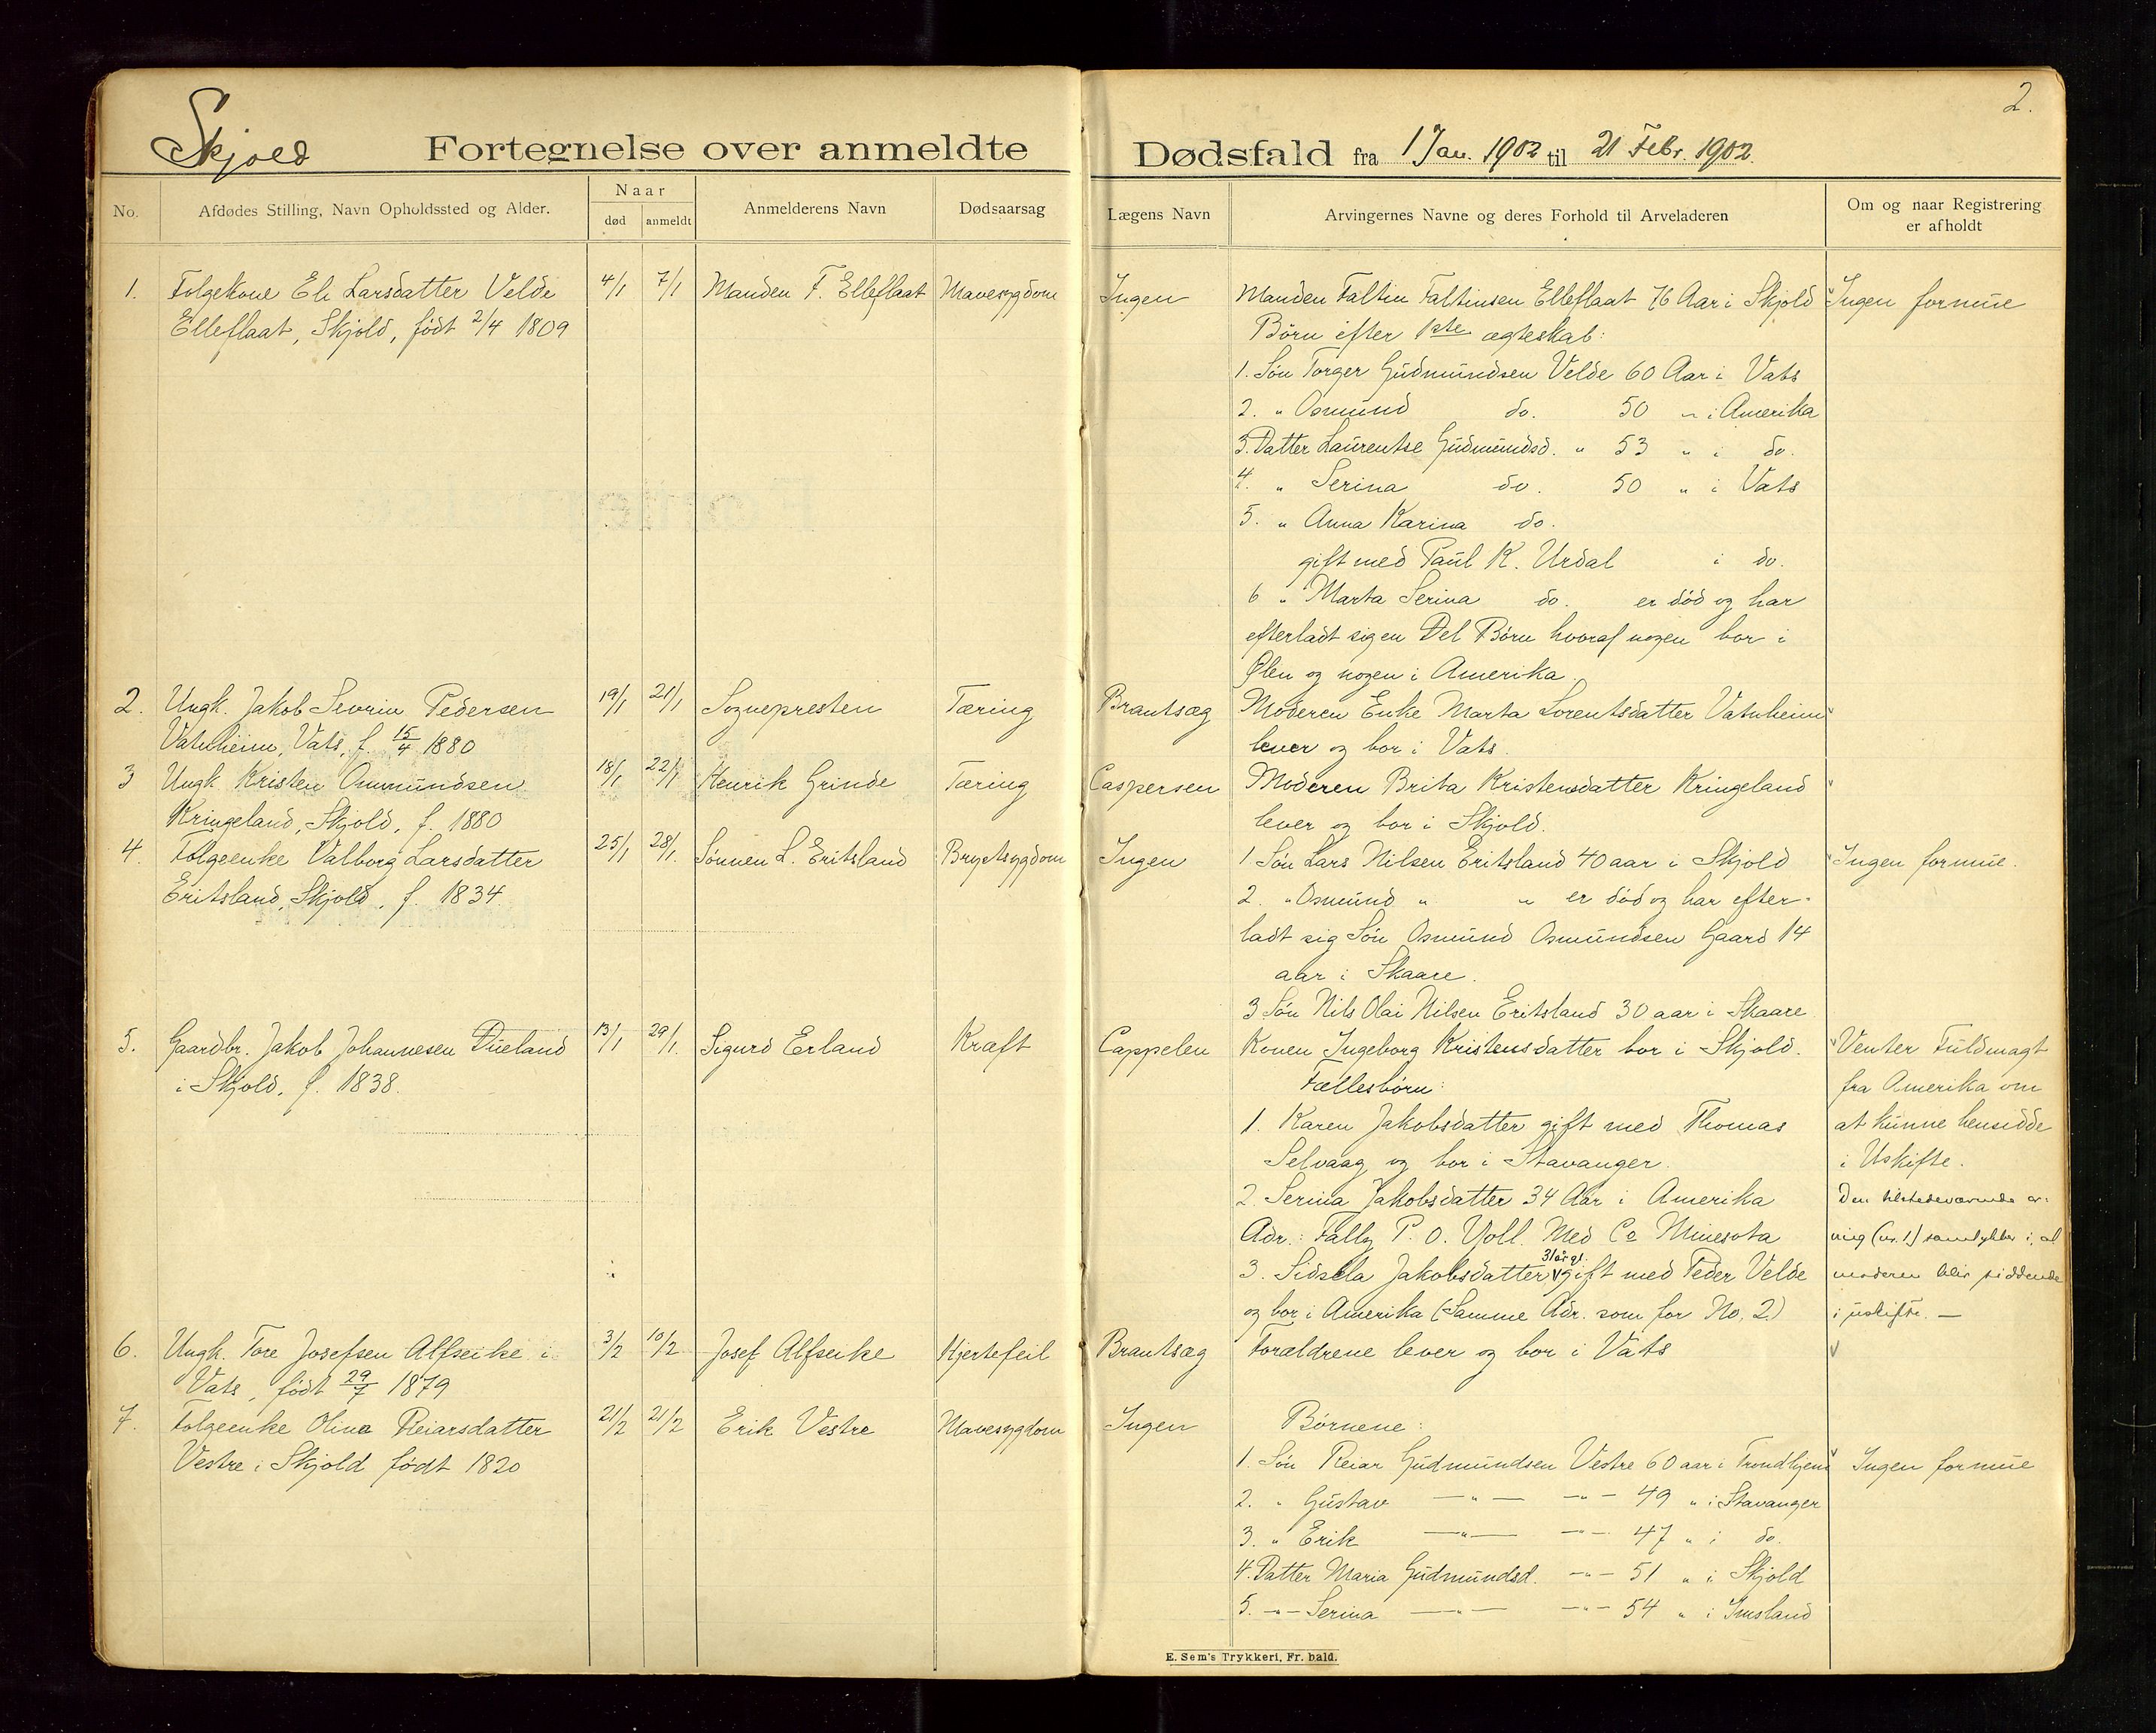 2.
Skjold Fortegnelse over anmeldte Dødsfald fra 1 Jan. 1902 til 21 Febr. 1902.
No. Afdødes Stilling, Navn Opholdssted og Alder. Naar død anmeldt Anmelderens Navn Dødsaarsag Lægens Navn Arvingernes Navne og deres Forhold til Arveladeren Om og naar Registrering
er afholdt
1. Folgekone Eli Larsdatter Velde 4/1 7/1 Manden F. Elleflaat Mavesygdom Ingen Manden Faltin Faltinsen Elleflaat 76 Aar i Skjold Ingen formue
Elleflaat, Skjold, født 2/4 1809 Børn efter 1ste ægteskab:
1. Søn Torger Gudmundsen Velde 60 Aar i Vats
2. " Osmund do. 50 " i Amerika
3. Datter Laurentse Gudmundsd. " 53 " i do.
4. " Serina do. 50 " i Vats
5. " Anna Karina do.
gift med Paul K. Urdal i do.
6 " Marta Serina do. er død og har
efterladt sig en Del Børn hvoraf nogen bor i
Ølen og nogen i Amerika.
2. Ungk. Jakob Sevrin Pedersen 19/1 21/1 Sognepresten Tæring Brantsæg Moderen Enke Marta Lorentsdatter Vatnheim
Vatnheim, Vats, f. 15/4 1880 lever og bor i Vats.
3 Ungk Kristen Ommundsen 18/1 22/1 Henrik Grinde Tæring Caspersen Moderen Brita Kristensdatter Kringeland
Kringeland, Skjold, f. 1880 lever og bor i Skjold.
4. Folgeenke Valborg Larsdatter 25/1 28/1. Sønnen L. Eritsland Brystsygdom Ingen 1 Søn Lars Nilsen Eritsland 40 aar i Skjold Ingen formue.
Eritsland, Skjold, f. 1834. 2. " Osmund " " er død og har efter-
ladt sig Søn Osmund Osmundsen Gaard 14
aar i Skaare.
3 Søn Nils Olai Nilsen Eritsland 30 aar i Skaare
5. Gaardbr. Jakob Johannesen Dueland 13/1 29/1. Sigurd Erland Kræft Cappelen Konen Ingeborg Kristensdatter bor i Skjold. Venter Fuldmagt
i Skjold, f. 1838. Fællesbørn: fra Amerika om
1. Karen Jakobsdatter gift med Thomas at kunne hensidde
Selvaag og bor i Stavanger. i Uskifte.
2. Serina Jakobsdatter 34 Aar i Amerika Den tilstedeværende ar-
Adr.: Fally P. O. Yoll. Med Co Minesota ving (nr. 1) samtykker i, at
3. Sidsela Jakobsdatter 31 år gl. gift med Peder Velde moderen blir siddende
og bor i Amerika (Samme Adr. som for No. 2) i uskifte. —
6. Ungk. Tore Josefsen Alfseike i 3/2 10/2 Josef Alfseike Hjertefeil Brantsæg Forældrene lever og bor i Vats
Vats, født 29/7 1879
7. Folgeenke Olina Reiarsdatter 21/2 21/2 Erik Vestre Mavesygdom Ingen Børnene:
Vestre i Skjold født 1820 1. Søn Reiar Gudmundsen Vestre 60 aar i Trondhjem Ingen formue
2. " Gustav —"— —"— 49 " i Stavanger
3. " Erik —"— —"— 47 " i do.
4. Datter Maria Gudmundsd. —"— 51 " i Skjold
5. —"— Serina —"— —"— 54 " i Imsland
E. Sem's Trykkeri, Fr. hald.